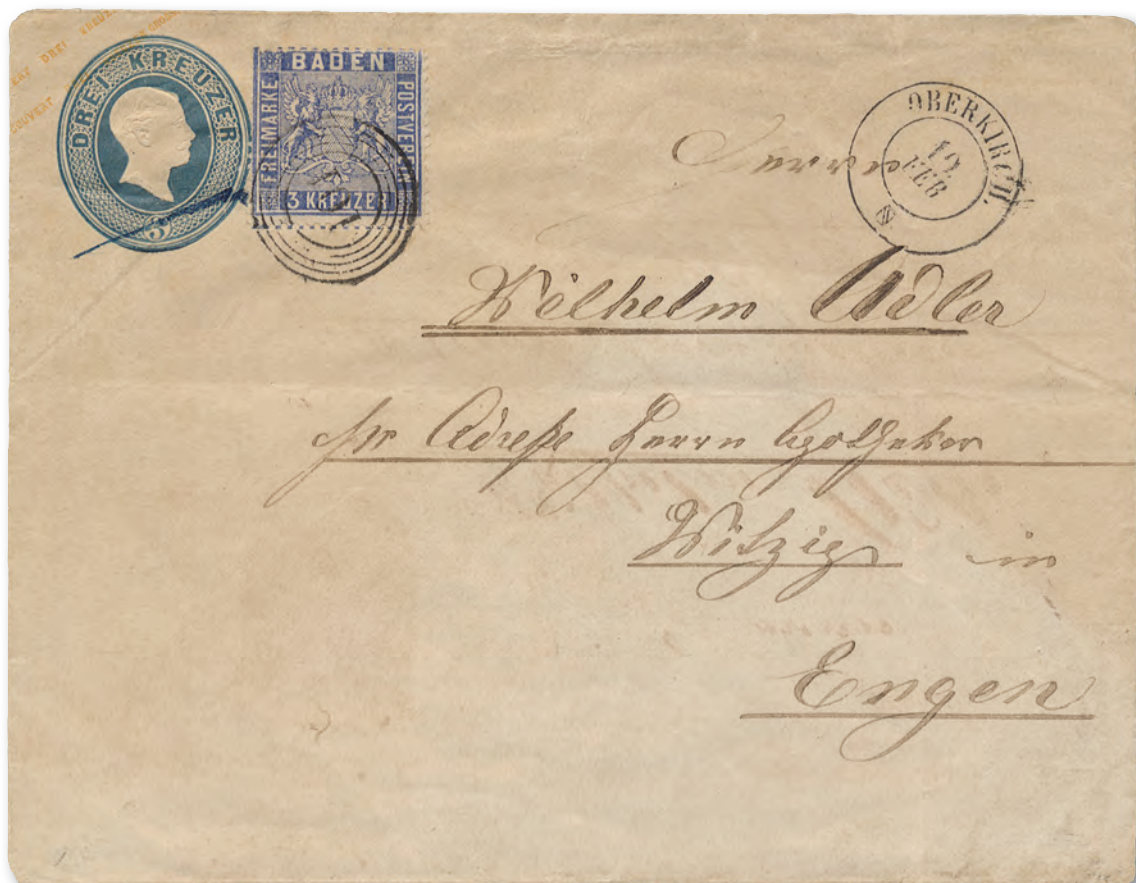 DREI KREUZER
3
BADEN
FREIMARKE
POSTVEREIN
3 KREUZER
OBERKIRCH.
19
FEB
Herrn
Wilhelm Adler
pr Adreße Herrn Apotheker
Witzig in
Engen